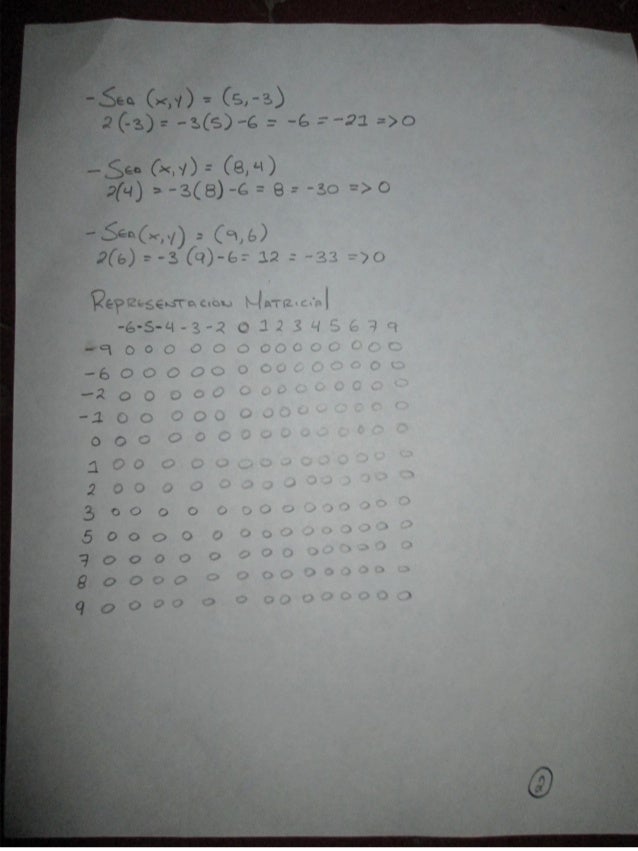 - Sea (x,y) = (5,-3)
2(-3) = -3(5)-6 = -6 = -21 => 0
- Sea (x,y) = (8,4)
2(4) = -3(8)-6 = 8 = -30 => 0
- Sea (x,y) = (9,6)
2(6) = -3(9)-6 = 12 = -33 => 0
REPRESENTACION MATRICIAL
-6 -5 -4 -3 -2 0 1 2 3 4 5 6 7 9
-9 0 0 0 0 0 0 0 0 0 0 0 0 0 0
-6 0 0 0 0 0 0 0 0 0 0 0 0 0 0
-2 0 0 0 0 0 0 0 0 0 0 0 0 0 0
-1 0 0 0 0 0 0 0 0 0 0 0 0 0 0
0 0 0 0 0 0 0 0 0 0 0 0 0 0 0
1 0 0 0 0 0 0 0 0 0 0 0 0 0 0
2 0 0 0 0 0 0 0 0 0 0 0 0 0 0
3 0 0 0 0 0 0 0 0 0 0 0 0 0 0
5 0 0 0 0 0 0 0 0 0 0 0 0 0 0
7 0 0 0 0 0 0 0 0 0 0 0 0 0 0
8 0 0 0 0 0 0 0 0 0 0 0 0 0 0
9 0 0 0 0 0 0 0 0 0 0 0 0 0 0